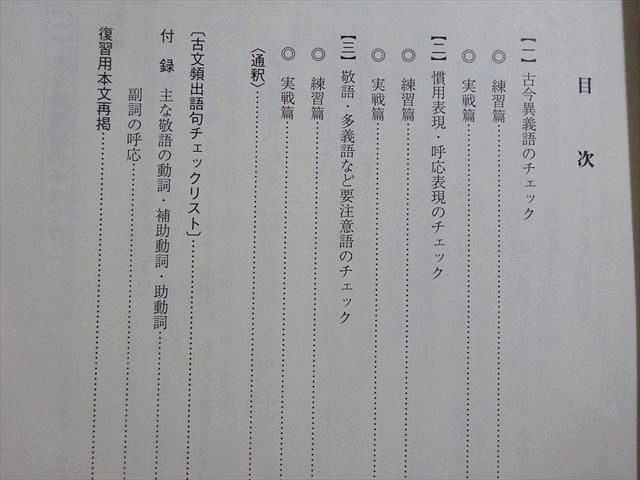 目次
【一】古今異義語のチェック
◎練習篇
◎実戦篇
【二】慣用表現・呼応表現のチェック
◎練習篇
◎実戦篇
【三】敬語・多義語など要注意語のチェック
◎練習篇
◎実戦篇
〈通釈〉
〔古文頻出語句チェックリスト〕
付録 主な敬語の動詞・補助動詞・助動詞
副詞の呼応
復習用本文再掲